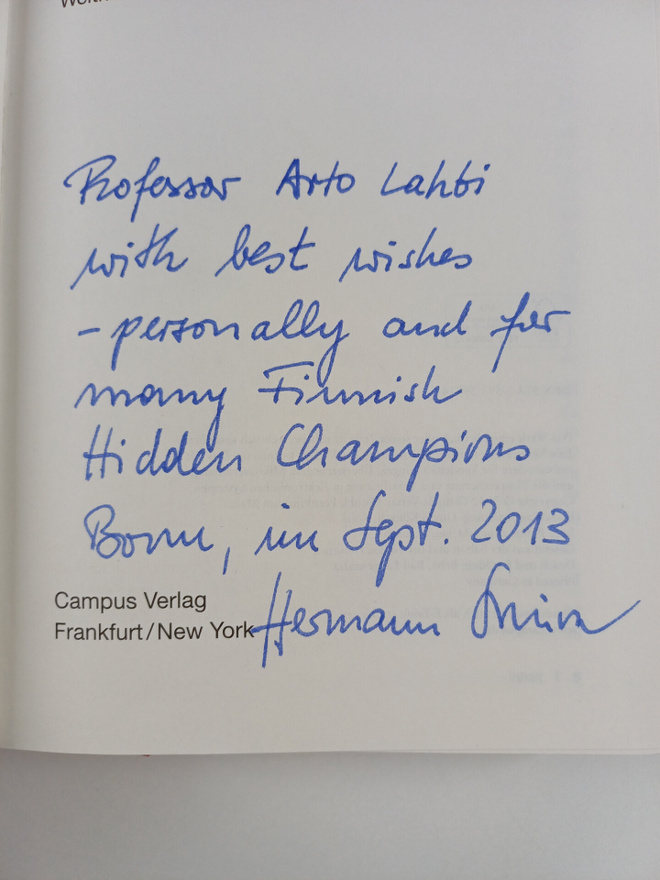 Professor Arto Lahti
with best wishes
– personally and for
many Finnish
Hidden Champions
Bonn, im Sept. 2013
Campus Verlag
Frankfurt/New York
Hermann Simon